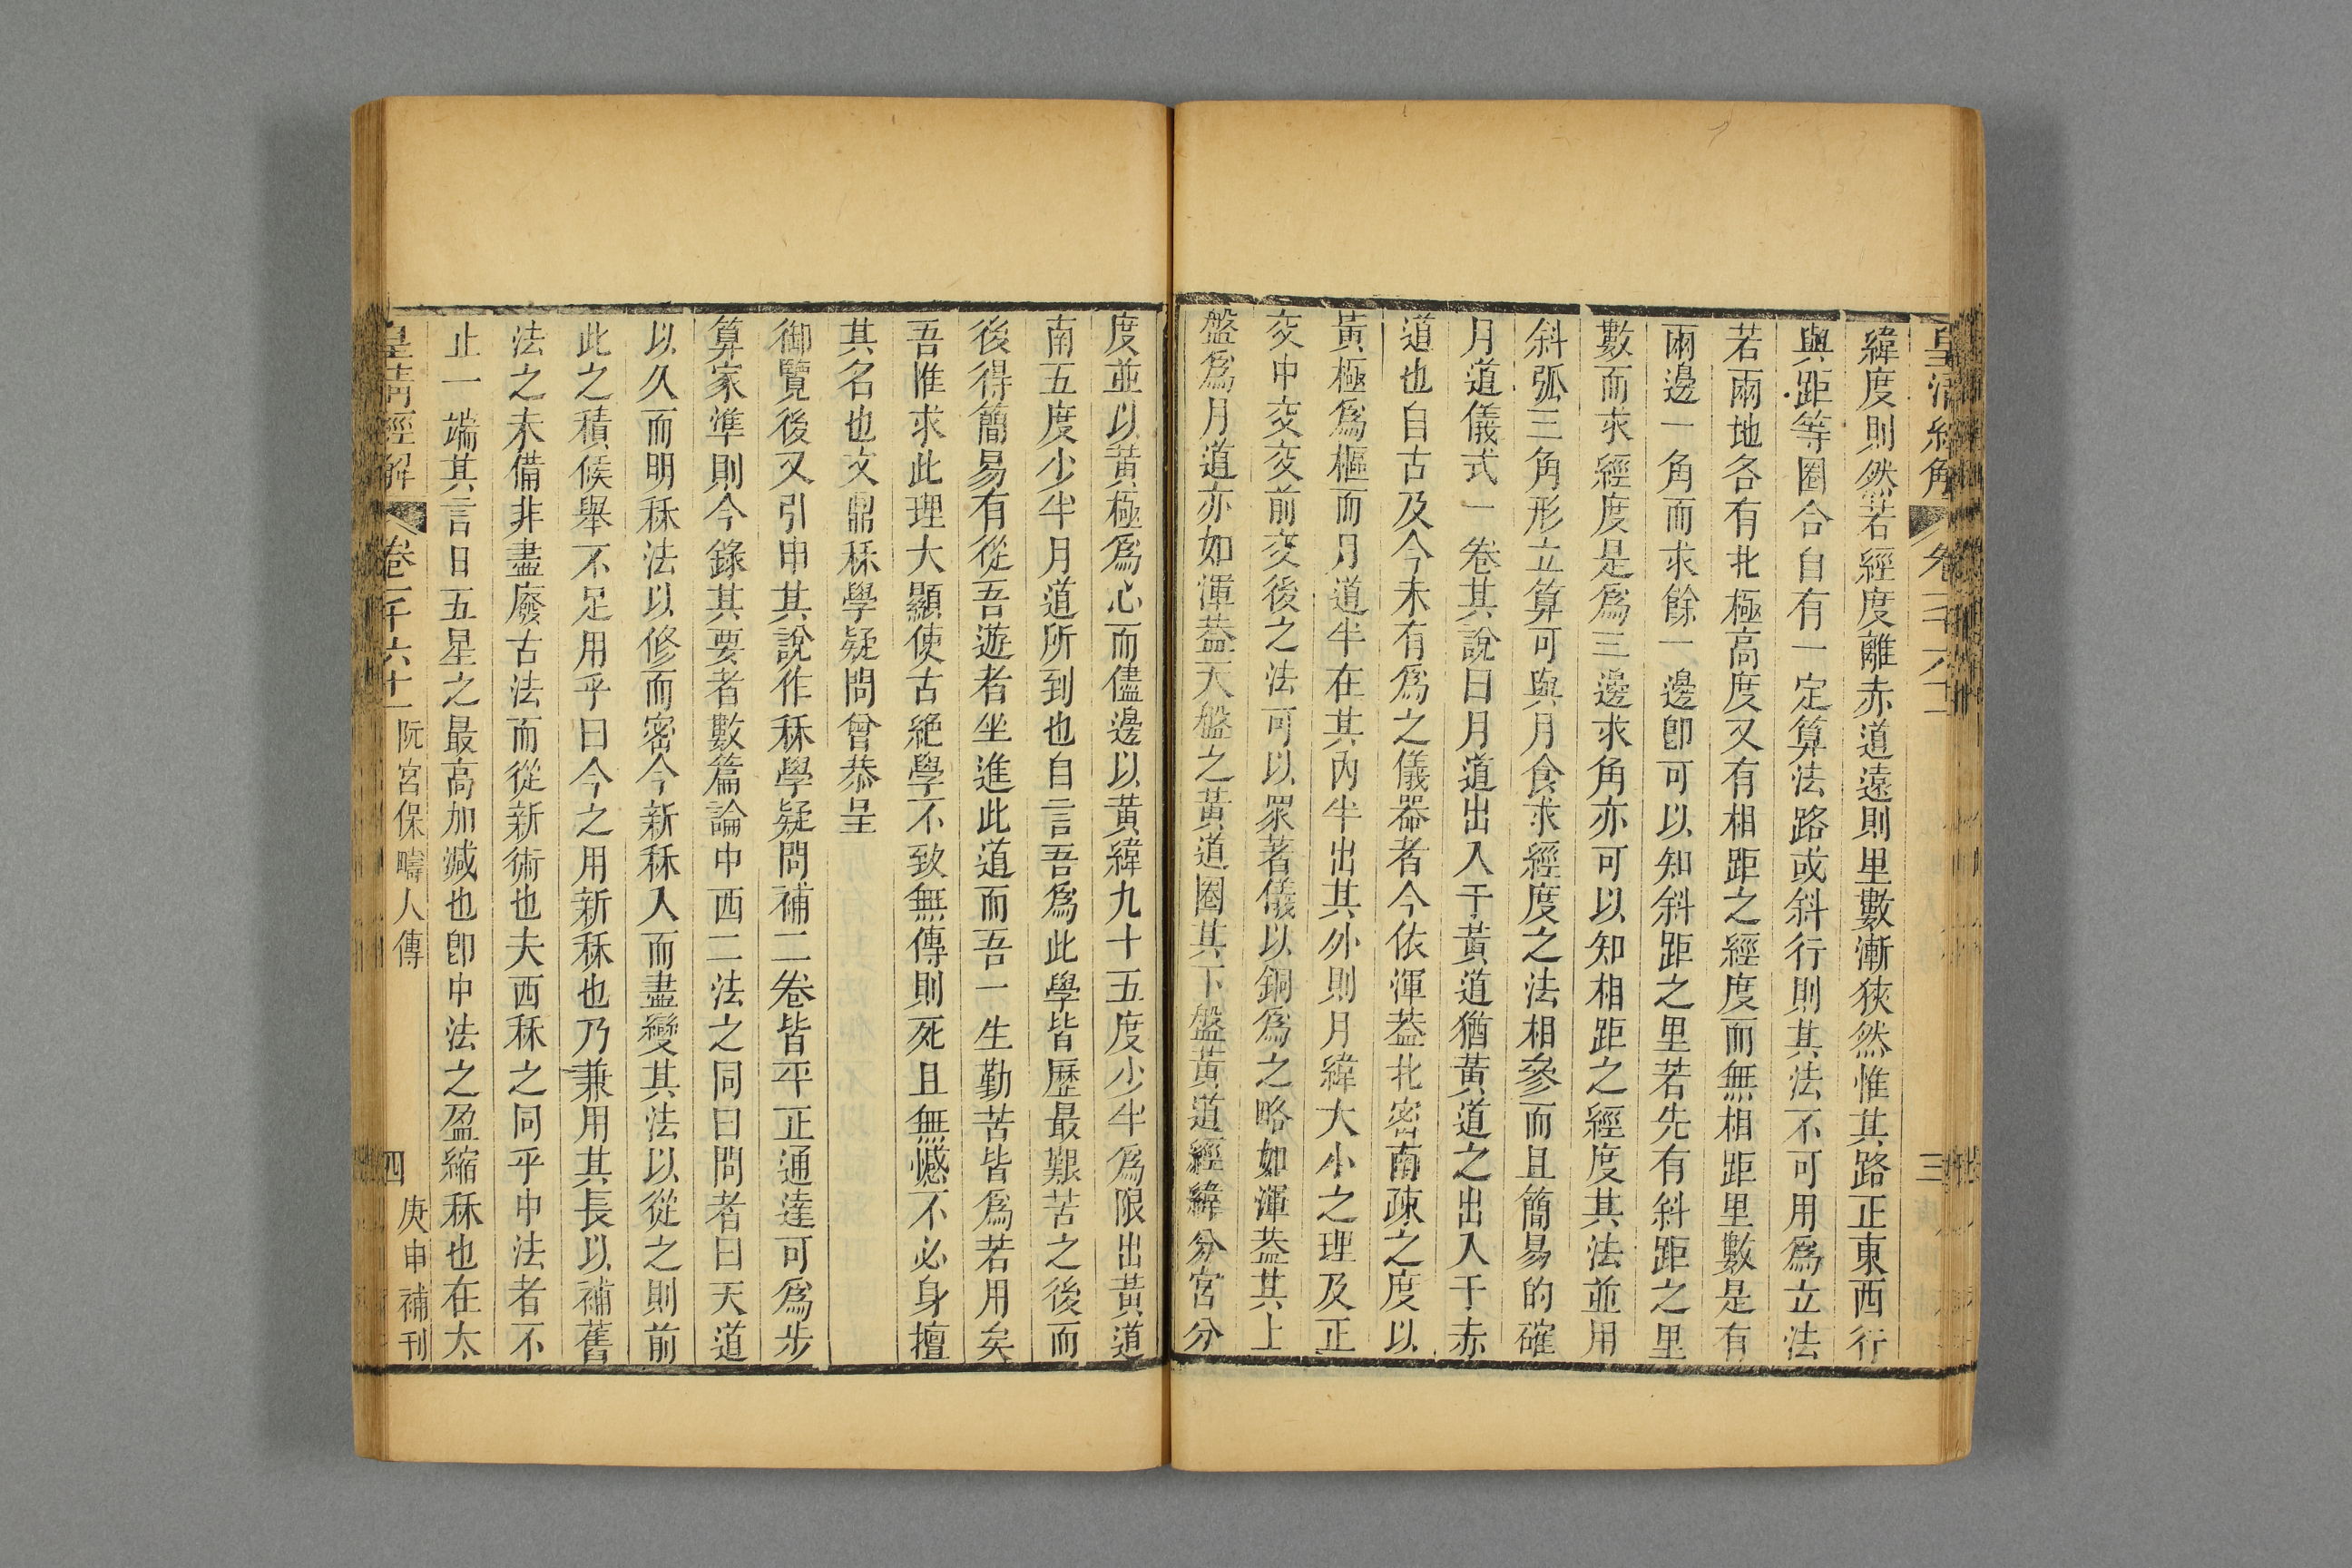 緯度則然若經度離赤道遠則里數漸狹然惟其路正東西行
與距等圈合自有一定算法路或斜行則其法不可用爲立法
若兩地各有北極高度又有相距之經度而無相距里數是有
兩邊一角而求餘一邊卽可以知斜距之里若先有斜距之里
數而求經度是爲三邊求角亦可以知相距之經度其法並用
斜弧三角形立算可與月食求經度之法相參而且簡易的確
月道儀式一卷其說曰月道出入于黃道猶黃道之出入于赤
道也自古及今未有爲之儀器者今依渾葢北密南疎之度以
黃極爲樞而月道半在其內半出其外則月緯大小之理及正
交中交交前交後之法可以眾著儀以銅爲之略如渾葢其上
盤爲月道亦如渾葢天盤之黃道圈其下盤黃道經緯分宮分
度並以黃極爲心而儘邊以黃緯九十五度少半爲限出黃道
南五度少半月道所到也自言吾爲此學皆歷最艱苦之後而
後得簡易有從吾遊者坐進此道而吾一生勤苦皆爲若用矣
吾惟求此理大顯使古絕學不致無傳則死且無憾不必身擅
其名也文鼎秝學疑問曾恭呈
御覽後又引申其說作秝學疑問補二卷皆平正通達可爲步
算家準則今錄其要者數篇論中西二法之同曰問者曰天道
以久而明秝法以修而密今新秝入而盡變其法以從之則前
此之積候舉不足用乎曰今之用新秝也乃兼用其長以補舊
法之未備非盡廢古法而從新術也夫西秝之同乎中法者不
止一端其言日五星之最高加減也卽中法之盈縮秝也在太
皇清經解 卷一千六十一 阮宮保疇人傳 四 庚申補刊